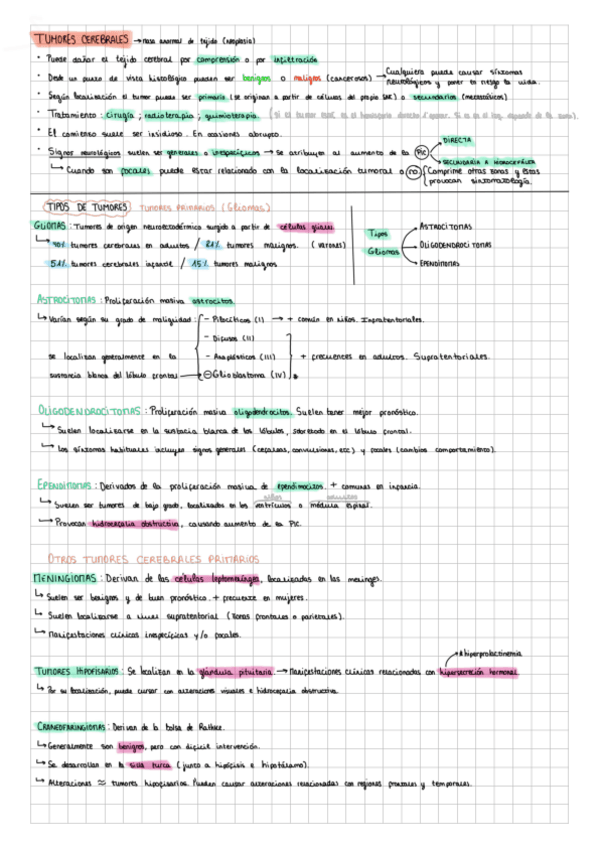 TUMORES CEREBRALES → masa anormal de tejido (neoplasia)
· Puede dañar el tejido cerebral por compresión o por infiltración
· Desde un punto de vista histológico pueden ser benignos o malignos (cancerosos) → Cualquiera puede causar síntomas neurológicos y poner en riesgo la vida.
· Según localización el tumor puede ser primario (se originan a partir de células del propio SNC) o secundarios (metastásicos)
· Tratamiento: cirugía; radioterapia; quimioterapia. (Si el tumor está en el hemisferio derecho
· El comienzo suele ser insidioso. En ocasiones abrupto.
· Signos neurológicos suelen ser generales o inespecíficos → Se atribuyen al aumento de la PIC
DIRECTA
SECUNDARIA A HIDROCEFALIA
↳ Cuando son focales puede estar relacionado con la localización tumoral o no
Comprime otras zonas y éstas provocan sintomatología.
TIPOS DE TUMORES TUMORES PRIMARIOS (Gliomas)
GLIOMAS: Tumores de origen neuroectodérmico surgido a partir de células gliales.
tumores cerebrales en adultos / tumores malignos. (varones)
tumores cerebrales infantil / 15% tumores malignos
Tipos Gliomas
ASTROCITOMAS
OLIGODENDROCITOMAS
EPENDIMOMAS
ASTROCITOMAS: Proliferación masiva astrocitos.
↳ Varían según su grado de malignidad: - Pilocíticos (I) → + común en niños. Infratentoriales.
- Difusos (II)
se localizan generalmente en la - Anaplásicos (III) + frecuentes en adultos. Supratentoriales.
sustancia blanca del lóbulo frontal Glioblastoma (IV)
OLIGODENDROCITOMAS: Proliferación masiva oligodendrocitos. Suelen tener mejor pronóstico.
↳ Suelen localizarse en la sustacia blanca de los lóbulos, sobretodo en el lóbulo frontal.
↳ Los síntomas habituales incluyen signos generales (cefaleas, convulsiones, etc) y focales (cambios comportamiento).
EPENDIMOMAS: Derivados de la proliferación masiva de ependimocitos. + comunes en infancia.
niños adultos
↳ Suelen ser tumores de bajo grado, localizados en los ventrículos o médula espinal.
↳ Provocan hidrocefalia obstructiva, causando aumento de la PIC.
OTROS TUMORES CEREBRALES PRIMARIOS
MENINGIOMAS: Derivan de las células leptomeníngeas, localizadas en las meninges.
↳ Suelen ser benignos y de buen pronóstico. + frecuente en mujeres.
↳ Suelen localizarse a nivel supratentorial (zonas frontales o parietales).
↳ Manifestaciones clínicas inespecíficas y/o focales.
hiperprolactinemia
TUMORES HIPOFISARIOS: Se localizan en la glándula pituitaria. → Manifestaciones clínicas relacionadas con hipersecreción hormonal.
↳ Por su localización, puede cursar con alteraciones visuales e hidrocefalia obstructiva.
CRANEOFARINGIOMAS: Derivan de la bolsa de Rathke.
↳ Generalmente son benignos, pero con difícil intervención.
↳ Se desarrollan en la silla turca (junto a hipófisis e hipotálamo).
↳ Alteraciones ≈ tumores hipofisarios. Pueden causar alteraciones relacionadas con regiones frontales y temporales.